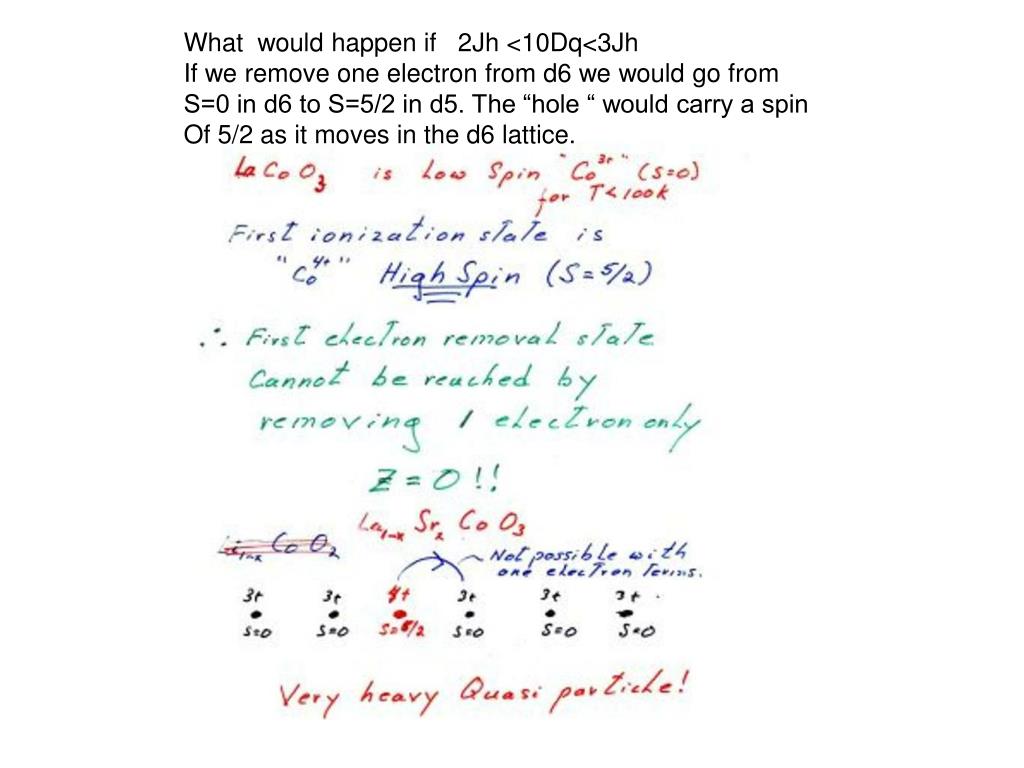 What would happen if 2Jh <10Dq<3Jh
If we remove one electron from d6 we would go from
S=0 in d6 to S=5/2 in d5. The “hole “ would carry a spin
Of 5/2 as it moves in the d6 lattice.
La Co O3 is Low Spin "Co3+" (S=0)
for T<100K
First ionization state is
"Co4+" High Spin (S=5/2)
∴ First electron removal state
Cannot be reached by
removing 1 electron only
Z = 0 !!
La1-x Srx Co O3
Li1-x Co O2
Not possible with
one electron terms.
3+ 3+ 4+ 3+ 3+ 3+
S=0 S=0 S=5/2 S=0 S=0 S=0
Very heavy Quasi particle!